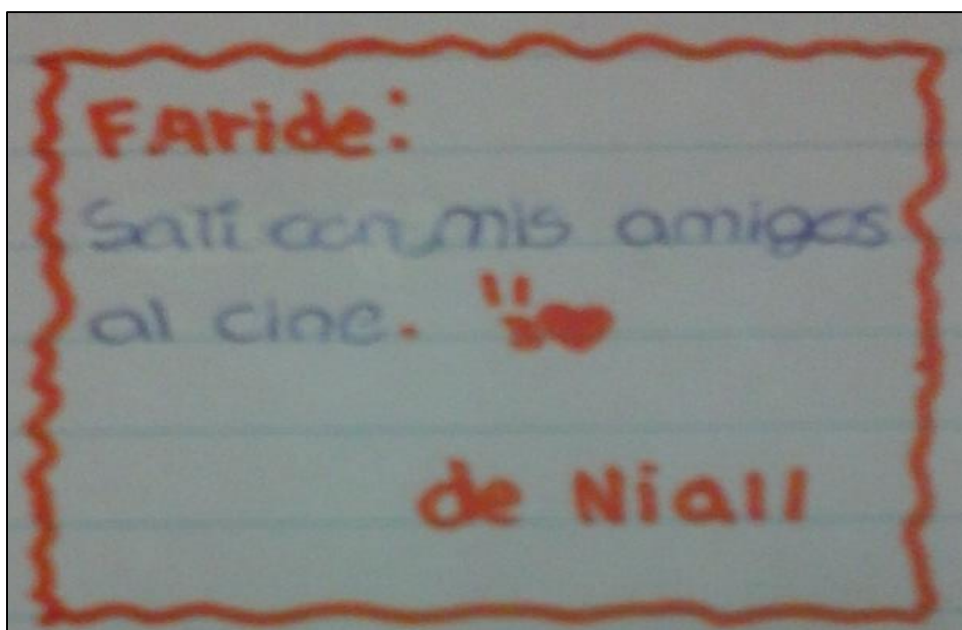 FAride:
Salí con mis amigos
al cine.
de Niall